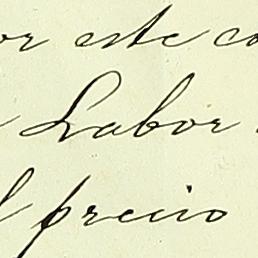 or este co
Labor
l precio